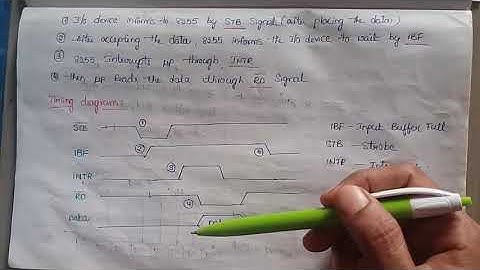 ① I/o device informs to 8255 by STB Signal (after placing the data)
② After accepting the data 8255 informs the I/o device to wait by IBF
③ 8255 interrupts µp through INTR
④ then µp Reads the data through RD Signal
Timing diagram:
STB ①
IBF ② ⑤
INTR ③
RD ④
DATA
IBF - Input Buffer Full
STB - Strobe
INTR -